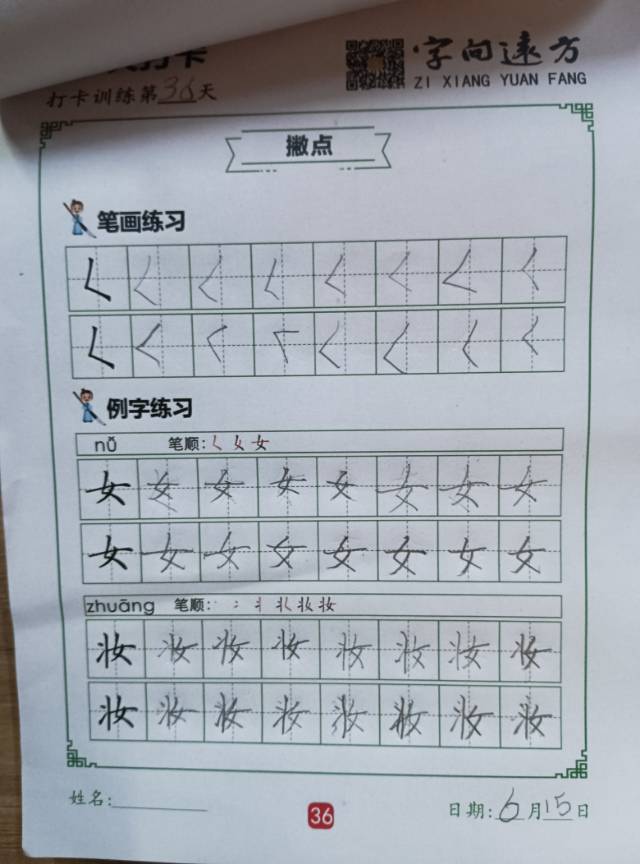 打卡
字向远方
ZI XIANG YUAN FANG
打卡训练第36天
撇点
笔画练习
𡿨 𡿨 𡿨 𡿨 𡿨 𡿨 𡿨 𡿨
𡿨 𡿨 𡿨 𡿨 𡿨 𡿨 𡿨 𡿨
例字练习
nǚ 笔顺: 𡿨 女
女 女 女 女 女 女 女 女
女 女 女 女 女 女 女 女
zhuāng 笔顺: 妆
妆 妆 妆 妆 妆 妆 妆 妆
妆 妆 妆 妆 妆 妆 妆 妆
姓名:
36
日期: 6月15日